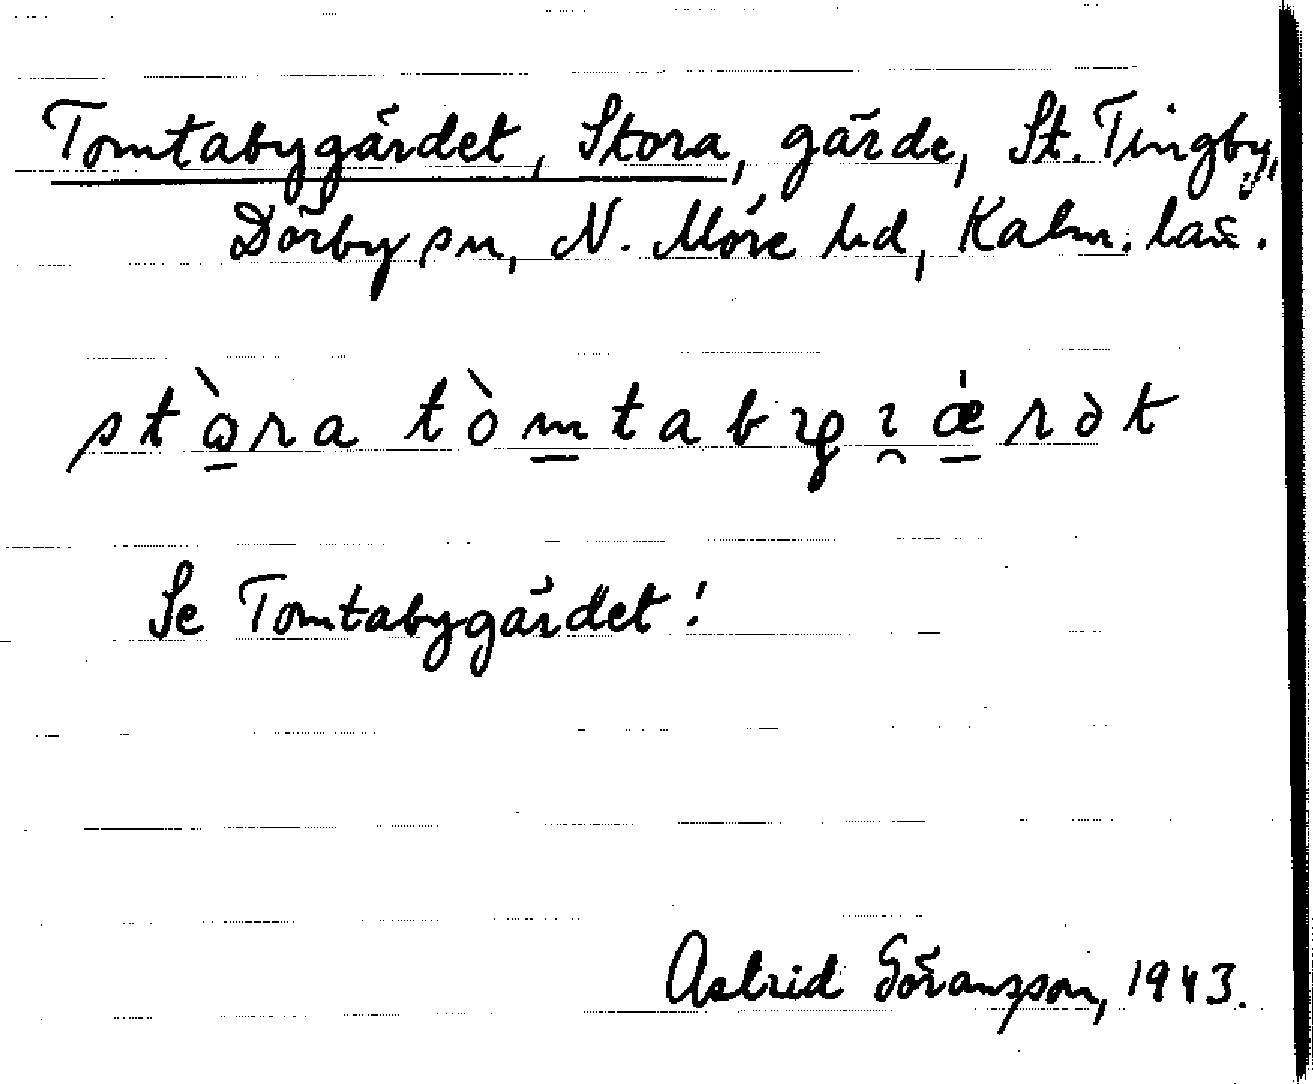 Tomtabygärdet, Stora, gärde, St. Tingby,
Dörby sn, N. Möre hd, Kalm. län.
stòra tòmtabygıæ̇rdət
Se Tomtabygärdet!
Astrid Göransson, 1943.